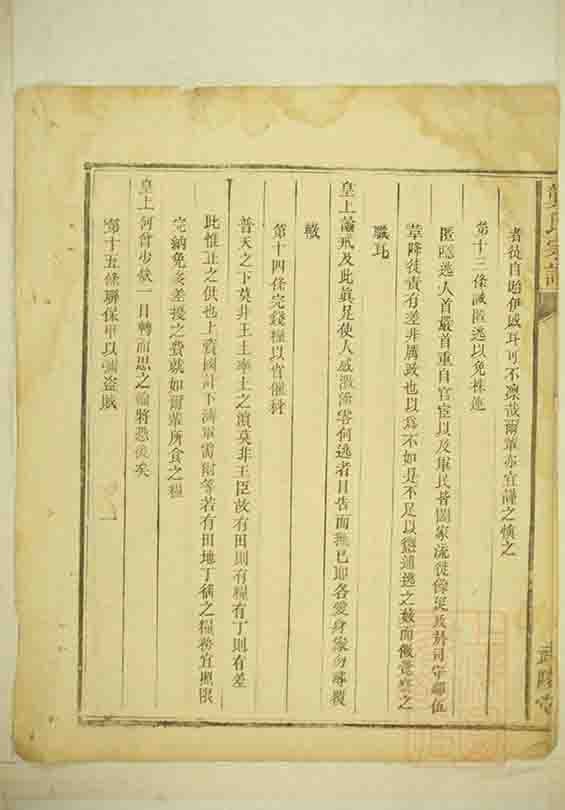 者徒自貽伊戚耳可不凜哉爾輩亦宜謹之慎之
第十三條誡匿逃以免株連
匿隱逃人首嚴首重自官宦以及軍民皆闔家流徙像逆及於司守鄰伍
葦降徒責有差非厲政也以為不如是不足以懲逋逃之藪而儆
職耳
皇上諭戒及此真是使人感激涕零何逃者日告而無已即各愛身家勿尋覆
轍
第十四條完錢糧以省催科
普天之下莫非王土率土之濱莫非王臣故有田則有糧有丁則有差
此惟正之供也上資國計下濟軍需爾等若有田地丁稱之糧務宜照限
完納免多差擾之費就如爾輩所食之糧
皇上何曾少欠一日轉而思之輸將恐後矣
第十五條聯保甲以弭盜賊
氏宗譜
武陵堂